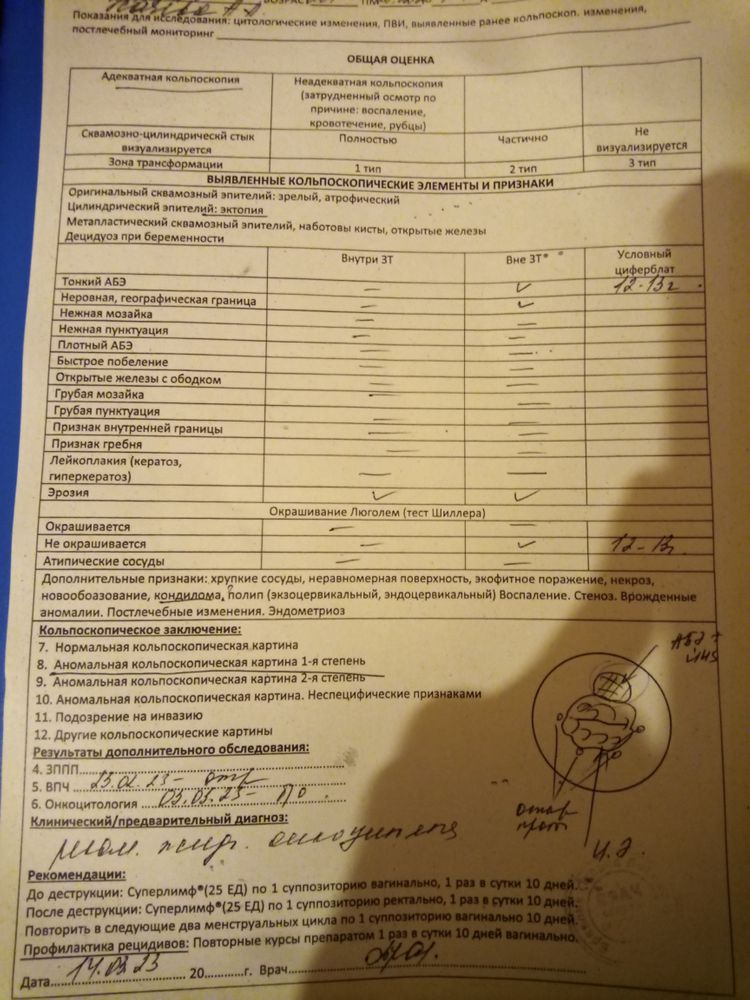 Показания для исследования: цитологические изменения, ПВИ, выявленные ранее кольпоскоп. изменения,
постлечебный мониторинг
ОБЩАЯ ОЦЕНКА
Адекватная кольпоскопия Неадекватная кольпоскопия (затрудненный осмотр по причине: воспаление, кровотечение, рубцы)
Сквамозно-цилиндрическй стык визуализируется Полностью Частично Не визуализируется
Зона трансформации 1 тип 2 тип 3 тип
ВЫЯВЛЕННЫЕ КОЛЬПОСКОПИЧЕСКИЕ ЭЛЕМЕНТЫ И ПРИЗНАКИ
Оригинальный сквамозный эпителий: зрелый, атрофический
Цилиндрический эпителий: эктопия
Метапластический сквамозный эпителий, наботовы кисты, открытые железы
Децидуоз при беременности
Внутри ЗТ Вне ЗТ* Условный циферблат
Тонкий АБЭ — ✓ 12-13г
Неровная, географическая граница — ✓
Нежная мозайка — —
Нежная пунктуация — —
Плотный АБЭ — —
Быстрое побеление — —
Открытые железы с ободком — —
Грубая мозайка — —
Грубая пунктуация — —
Признак внутренней границы — —
Признак гребня — —
Лейкоплакия (кератоз, гиперкератоз) — —
Эрозия ✓ ✓
Окрашивание Люголем (тест Шиллера)
Окрашивается — —
Не окрашивается — ✓ 12-13г
Атипические сосуды — —
Дополнительные признаки: хрупкие сосуды, неравномерная поверхность, экзофитное поражение, некроз,
новообоазование, кондилома, полип (экзоцервикальный, эндоцервикальный) Воспаление. Стеноз. Врожденные
аномалии. Постлечебные изменения. Эндометриоз
Кольпоскопическое заключение:
7. Нормальная кольпоскопическая картина
8. Аномальная кольпоскопическая картина 1-я степень
9. Аномальная кольпоскопическая картина 2-я степень
10. Аномальная кольпоскопическая картина. Неспецифические признаками
11. Подозрение на инвазию
12. Другие кольпоскопические картины
АБЭ +
Результаты дополнительного обследования:
4. ЗППП
5. ВПЧ 23.02.23- отр
6. Онкоцитология 03.03.23-
Клинический/предварительный диагноз:
Ц.Э.
Рекомендации:
До деструкции: Суперлимф®(25 ЕД) по 1 суппозиторию вагинально, 1 раз в сутки 10 дней.
После деструкции: Суперлимф®(25 ЕД) по 1 суппозиторию ректально, 1 раз в сутки 10 дней.
Повторить в следующие два менструальных цикла по 1 суппозиторию вагинально 10 дней.
Профилактика рецидивов: Повторные курсы препаратом 1 раз в сутки 10 дней вагинально.
Дата 14.03.23 20 г. Врач